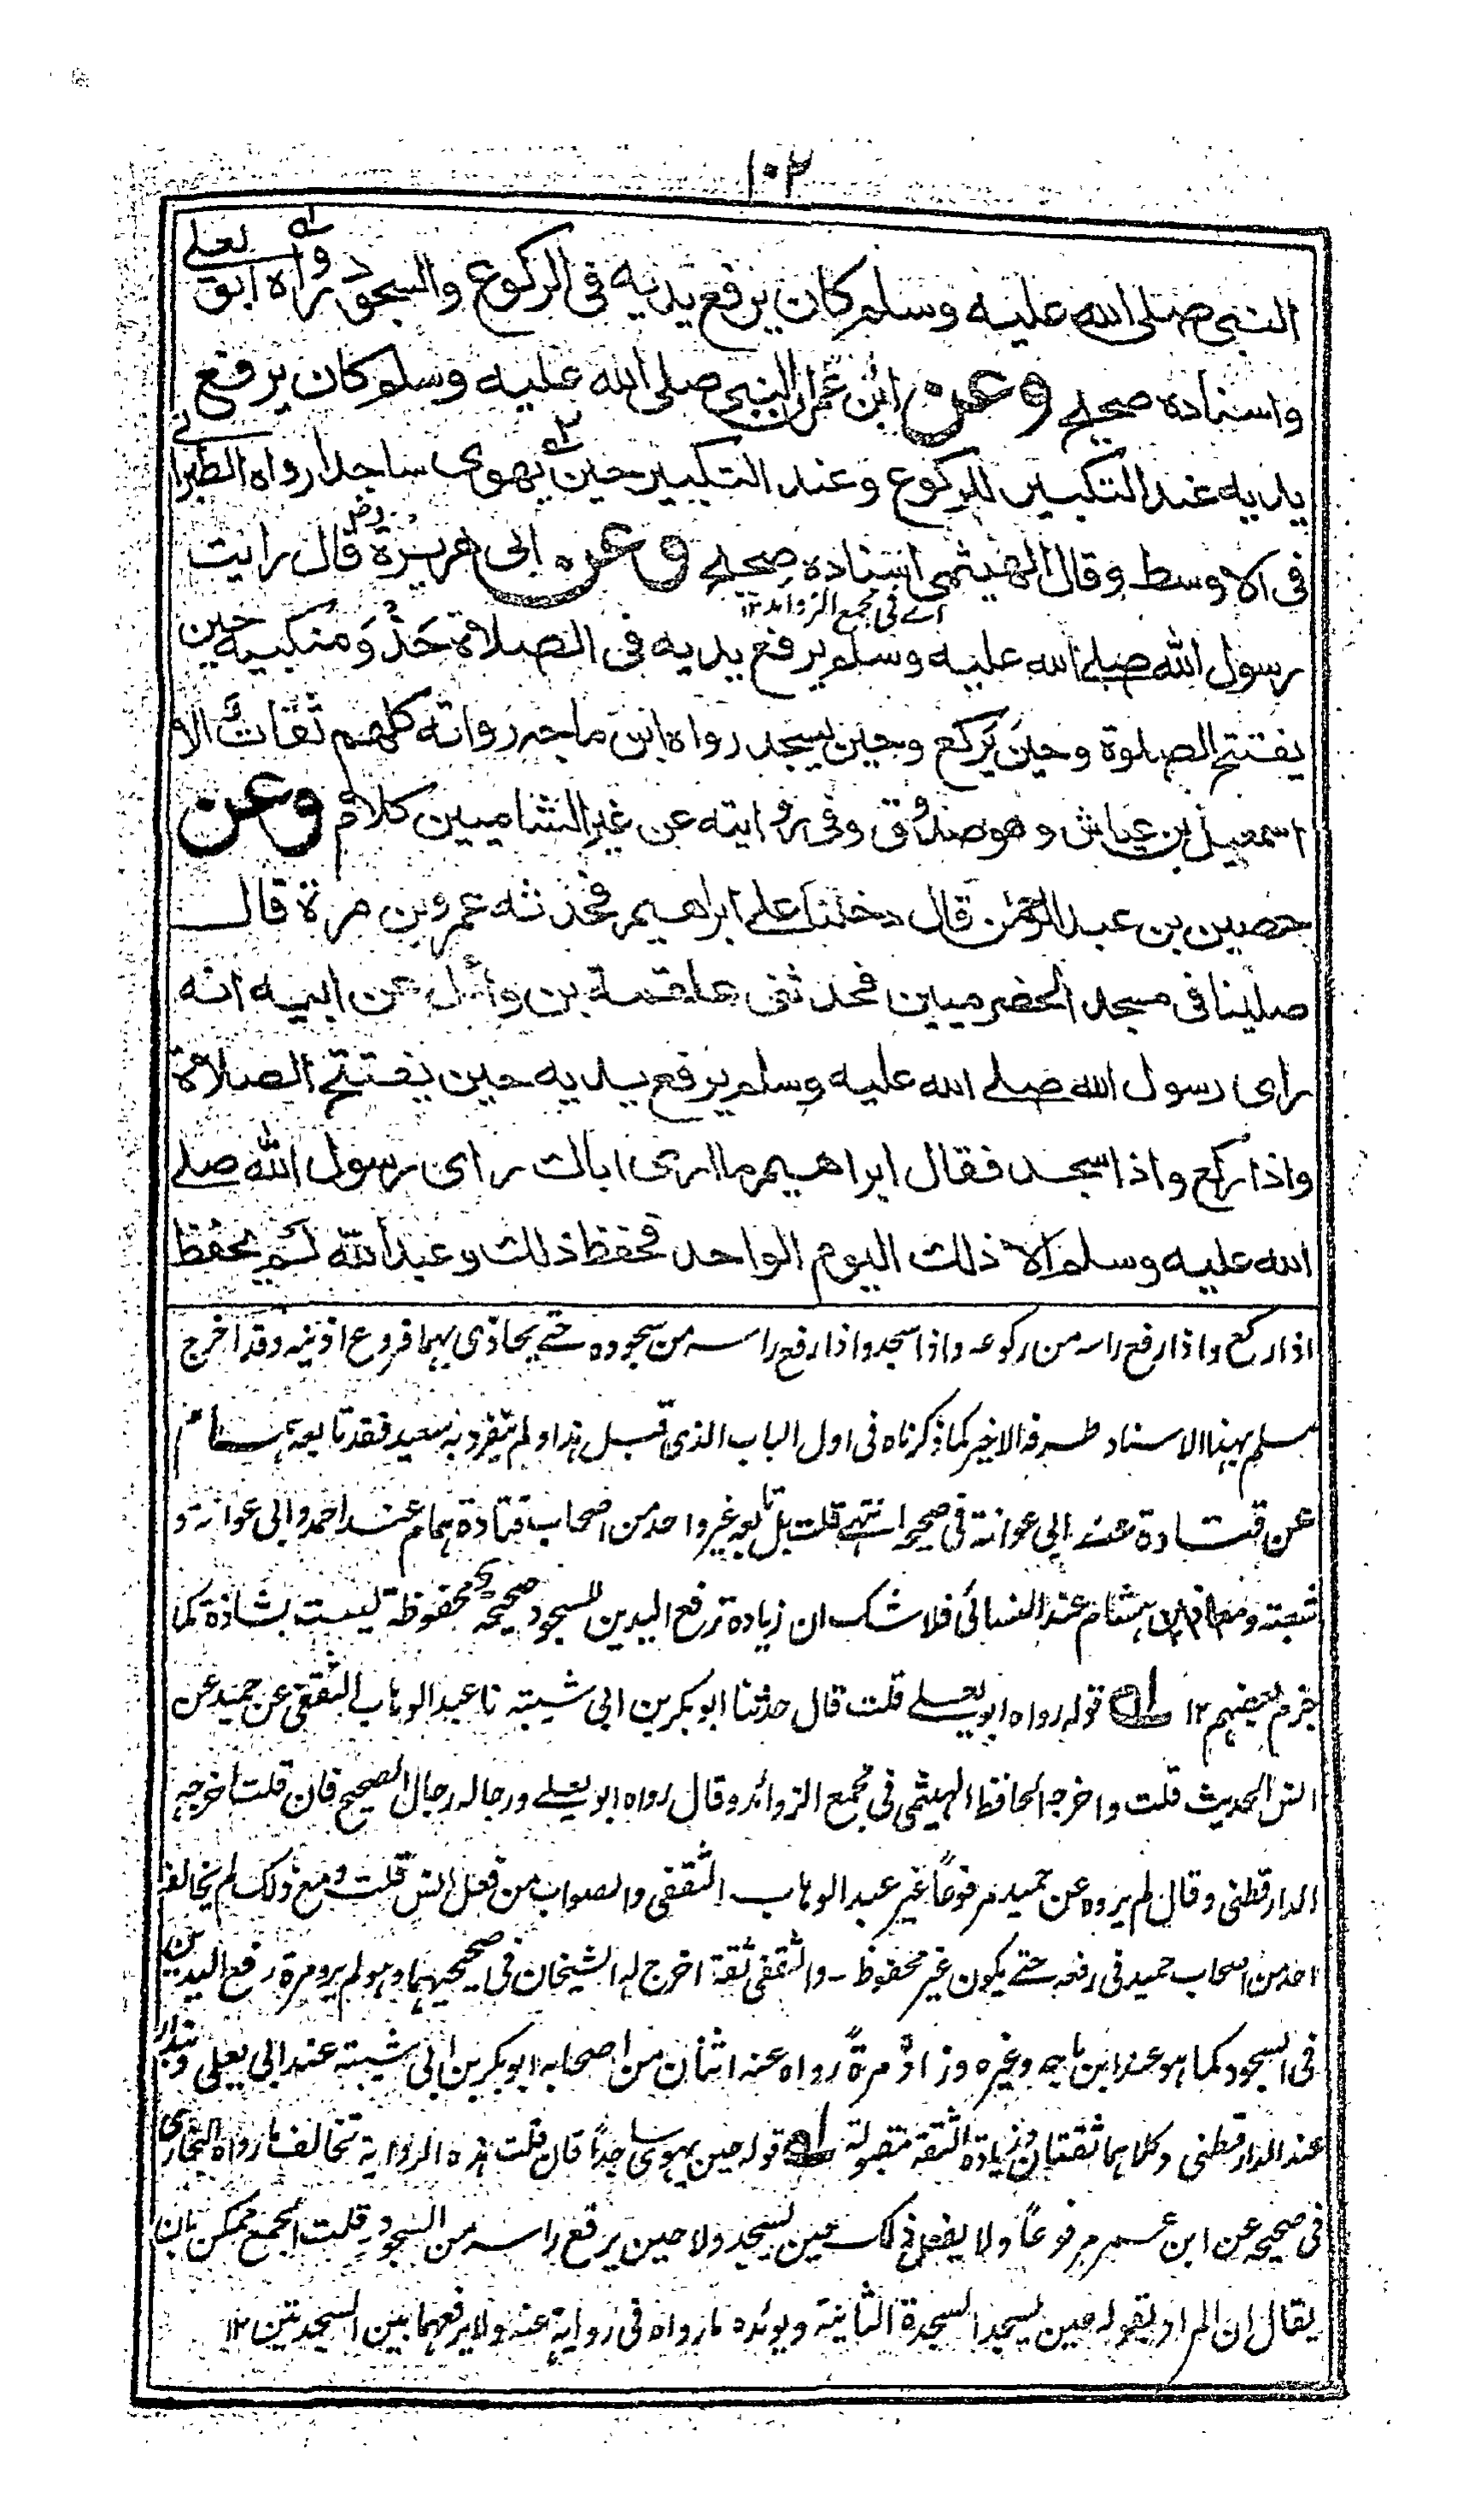 ١٠٢
النبي صلى الله عليه وسلم كان يرفع يديه فى الركوع والسجود رواه ابو يعلے
واسناده صحيح وعن ابن عمر ان النبي صلى الله عليه وسلم كان يرفع
يديه عند التكبير للركوع وعند التكبير حين يهوى ساجدا رواه الطبرانے
فى الاوسط وقال الهيثمي اسناده صحيح وعن ابى هريرة رض قال رايت
اے فى مجمع الزوائد ١٢
رسول الله صلے الله عليه وسلم يرفع يديه فى الصلاة حَذْوَ منكبيه حين
يفتتح الصلوة وحين يركع وحين يسجد رواه ابن ماجه رواته كلهم ثقات الا
اسمعيل بن عياش وهو صدوق وفى روايته عن غير الشاميين كلام وعن
حصين بن عبد الرحمن قال دخلنا على ابراهيم فحدثه عمرو بن مرة قال
صلينا فى مسجد الحضرميين فحدثنى علقمة بن وائل عن ابيه انه
راى رسول الله صلے الله عليه وسلم يرفع يديه حين يفتتح الصلاة
واذا ركع واذا سجد فقال ابراهيم ما ارى اباك راى رسول الله صلے
الله عليه وسلم الا ذلك اليوم الواحد فحفظ ذلك وعبد الله لم يحفظ
اذا ركع واذا رفع راسه من ركوعه واذا سجد واذا رفع راسه من سجوده حتے يحاذى بهما فروع اذنيه وقد اخرج
مسلم بهذا الاسناد طرفه الاخير كما ذكرناه فى اول الباب الذى قبل هذا ولم ينفرد به سعيد فقد تابعه همام
عن قتادة عند ابى عوانة فى صحيحه انتهے قلت بل تابعه غير واحد من اصحاب قتادة همام عند احمد وابى عوانة و
شعبة ومعاذ بن هشام عند النسائى فلا شك ان زيادة رفع اليدين للسجود صحيحة محفوظة ليست بشاذة كما
جزم بعضهم ١٢ له قوله رواه ابو يعلے قلت قال حدثنا ابو بكر بن ابى شيبة نا عبد الوهاب الثقفى عن حميد عن
انس الحديث قلت واخرجه الحافظ الهيثمى فى مجمع الزوائد وقال رواه ابو يعلے ورجاله رجال الصحيح فان قلت اخرجه
الدارقطنى وقال لم يروه عن حميد مرفوعاً غير عبد الوهاب الثقفى والصواب من فعل انس قلت ومع ذلك لم يخالفه
احد من اصحاب حميد فى رفعه حتے يكون غير محفوظ ۔ والثقفى ثقة اخرج له الشيخان فى صحيحيهما وهو لم يرو مرة رفع اليدين
فى السجود كما هو عند ابن ماجه وغيره وزاد مرةً رواه عنه اثنان من اصحابه ابو بكر بن ابى شيبة عند ابى يعلى وبندار
عند الدارقطنى وكلاهما ثقتان وزيادة الثقة مقبولة له قوله حين يهوى ساجداً فان قلت هذه الرواية تخالف ما رواه البخارى
فى صحيحه عن ابن عمر مرفوعاً ولا يفعل ذلك حين يسجد ولا حين يرفع راسه من السجود قلت الجمع ممكن بان
يقال ان المراد بقوله حين يسجد السجدة الثانية ويؤيده ما رواه فى رواية عنه ولا يرفعهما بين السجدتين ١٢